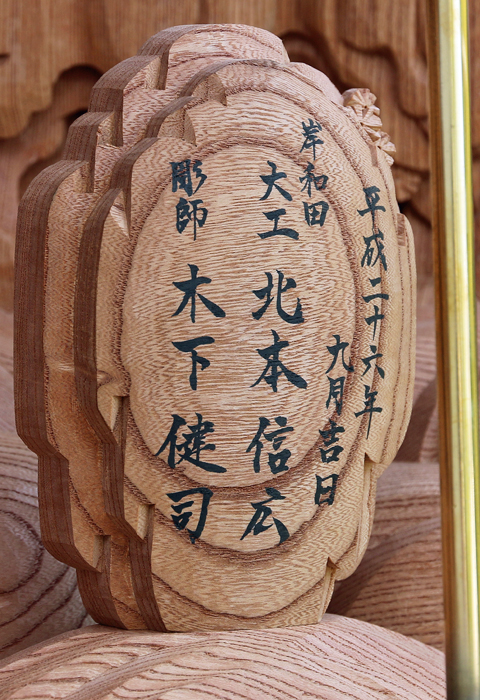 平成二十六年
九月吉日
岸和田
大工 北本信広
彫師 木下健司